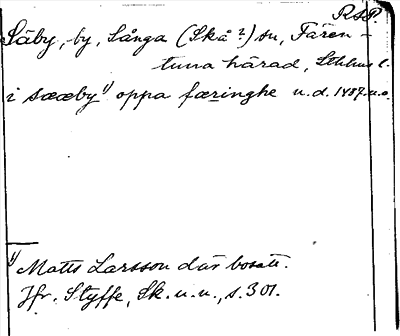 R.S.P.
Säby, by, Sånga (Skå?) sn, Fären-
tuna härad, Sthlms l.
i sææby¹⁾ oppa færinghe u.d. 1487 u.o.
¹⁾ Matts Larsson där bosatt.
Jfr. Styffe, Sk. u. u., s. 301.